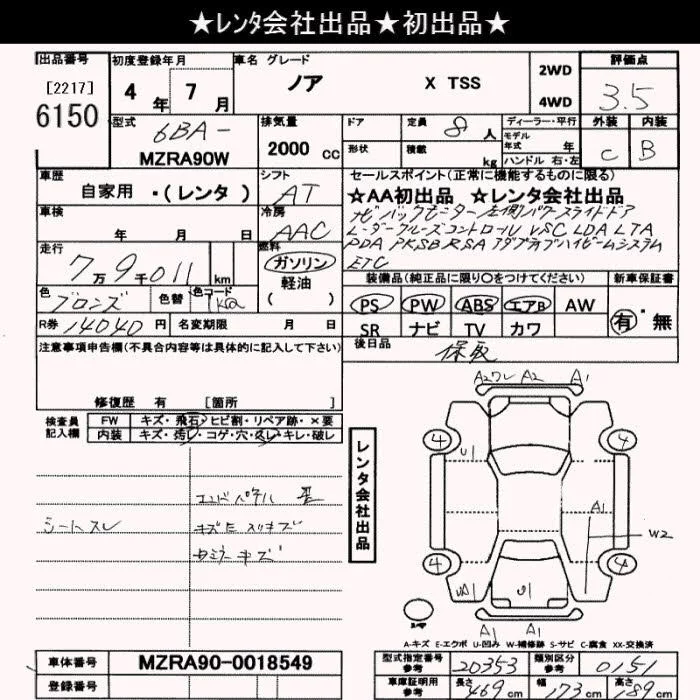 ★レンタ会社出品★初出品★
出品番号 初度登録年月 車名 グレード 2WD 評価点
[2217] 4年 7月 ノア X TSS 4WD 3.5
6150
型式 排気量 ドア 定員 8人 ディーラー・平行 外装 内装
6BA- 2000cc 形状 積載 kg モデル年式 年 C B
MZRA90W ハンドル 右・左
車歴 シフト セールスポイント(正常に機能するものに限る)
自家用 ・(レンタ) AT ☆AA初出品 ☆レンタ会社出品
車検 冷房 ナビ バックモニター 左側パワースライドドア
年 月 日 AAC レーダークルーズコントロール VSC LDA LTA
走行 燃料 PDA PKSB RSA アダプティブハイビームシステム
7万9千011km ガソリン ETC
軽油
( )
装備品(純正品に限り○をつけてください) 新車保証書
色 ブロンズ 色替 色コード PS PW ABS エアB AW 有・無
R券 14040円 名変期限 月 日 SR ナビ TV カワ
注意事項申告欄(不具合内容等は具体的に記入して下さい) 後日品 保取
修復歴 有 [箇所
検査員記入欄 FW キズ・飛石・ヒビ割・リペア跡・×要
内装 キズ・汚レ・コゲ・穴・スレ・キレ・破レ
A2ワレ A2 A1
4 4
U1
A1
W2
シートスレ
キズ
レンタ会社出品
4 4
UA1 U1
A1 A1
A-キズ E-エクボ U-凹み W-補修跡 S-サビ C-腐食 XX-交換済
車体番号 MZRA90-0018549 型式指定番号参考 20353 類別区分参考 0151
登録番号 車庫証明用参考 長さ 469cm 幅 173cm 高さ 189cm